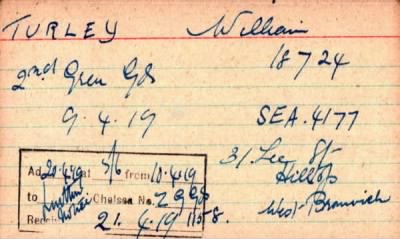 TURLEY William
18724
2nd Gren Gds
9.4.19 SEA.4177
31 Lee St
Hilltop
West Bromwich
Ad 20.4.19 at 5/6 from 10.4.19
to Chelsea No. Z
Rec 21.4.19 1158.